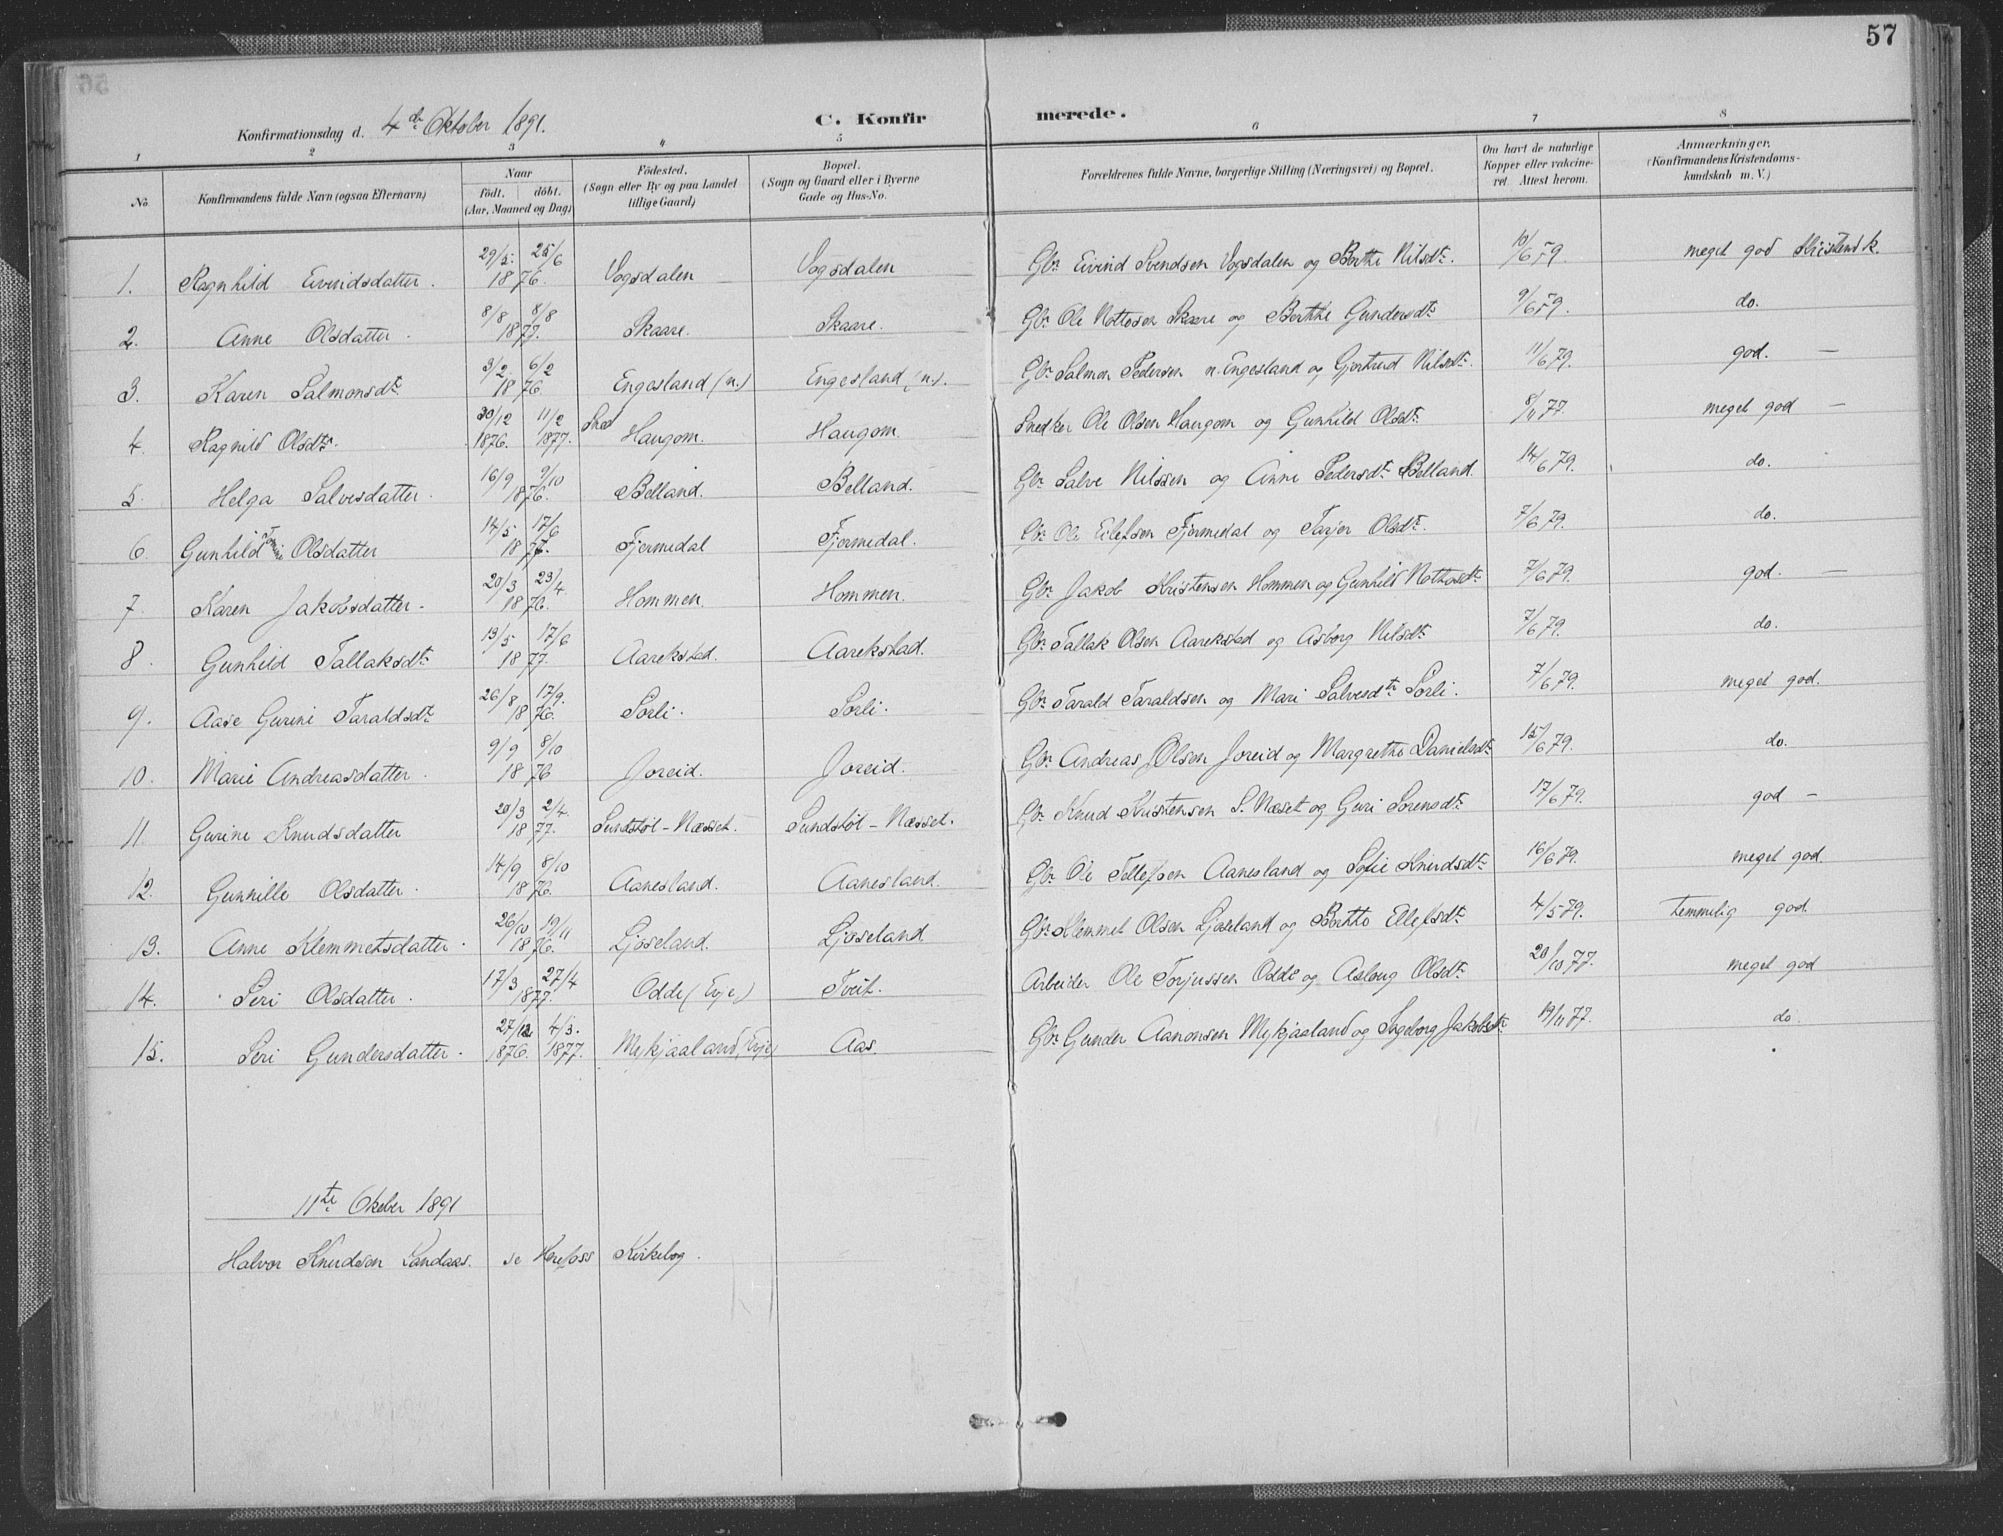 57
Konfirmationsdag d. 4de Oktober 1891. C. Konfirmerede.
1 2 3 4 5 6 7 8
No. Konfirmandens fulde Navn (ogsaa Efternavn) Naar født. døbt. (Aar, Maaned og Dag) Fødested. (Sogn eller By og paa Landet tillige Gaard) Bopæl. (Sogn og Gaard eller i Byerne Gade og Hus-No. Forældrenes fulde Navne, borgerlige Stilling (Næringsvei) og Bopæl. Om havt de naturlige Kopper eller vakcineret. Attest herom. Anmærkninger. (Konfirmandens Kristendomskundskab m. V.)
1. Ragnhild Eivindsdatter. 29/5 25/6 1876. Vogsdalen Vogsdalen Gbr. Eivind Svendsen Vogsdalen og Berthe Nilsdtr. 10/6 79. meget god Kristendk.
2. Anne Olsdatter. 8/8 8/8 1877. Skaare. Skaare. Gbr. Ole Nottosen Skaare og Berthe Gundersdtr 9/6 79. do.
3. Karen Salmonsdtr 3/2 6/2 1876. Engesland (n.) Engesland (n.). Gbr. Salmon Pedersen n. Engesland og Gjertrud Nilsdtr. 11/6 79. god. —
4. Ragnild Olsdtr. 30/12 1876. 11/2 1877. Haugom. Haugom. Snedker Ole Olsen Haugom og Gunhild Olsdtr. 8/11 77. meget god —
5. Helga Salvesdatter. 16/9 9/10 1876. Belland. Belland. Gbr. Salve Nilssen og Anne Pedersdtr Belland. 14/6 79. do.
6. Gunhild Olsdatter 14/5 17/6 1877. Fjermedal Fjermedal. Gbr. Ole Eilefsen Fjermedal og Tarjer Olsdtr. 7/6 79. do.
7. Karen Jakobsdatter. 20/3 23/4 1876. Hommen. Hommen. Gbr. Jakob Kristensen Hommen og Gunhild Nottosdtr 7/6 79. god. —
8. Gunhild Tallaksdtr 13/5 17/6 1877. Aarekstad. Aarekstad. Gbr. Tallak Olsen Aarekstad og Asborg Nilsdtr 7/6 79. do.
9. Aase Gurini Taraldsdtr 26/8 17/9 1876. Sorli. Sorli. Gbr. Tarald Taraldsen og Mari Salvesdtr Sorli. 7/6 79. meget god.
10. Marie Andreasdatter. 9/9 8/10 1876 Joreid. Joreid. Gbr. Andreas Olsen Joreid og Margrethe Danielsdtr 15/6 79. do.
11. Gurine Knudsdatter 20/3 2/4 1877. Sundstøl-Næsset. Sundstøl-Næsset. Gbr. Knud Kristensen S. Næset og Guri Sorensdtr 17/6 79. god —
12. Gunnille Olsdatter. 14/9 8/10 1876. Aanesland. Aanesland. Gbr. Ole Tellefsen Aanesland og Sofie Knudsdtr 16/6 79. meget god.
13. Anne Klemmetsdatter. 26/10 19/11 1876. Ljoseland. Ljoseland Gbr. Klemmet Olsen Ljoseland og Berthe Ellefsdtr 4/5 79. temmelig god.
14. Seri Olsdatter. 17/3 27/4 1877. Odde (Evje) Tveit. Arbeider Ole Torjussen Odde og Aslaug Olsdtr 20/10 77. meget god
15. Seri Gundersdatter. 27/12 1876. 4/3. 1877. Mykjaaland (Evje) Aas. Gbr. Gunder Aanonsen Mykjaaland og Ingeborg Jakobsdtr 19/11 77. do
11te Oktober 1891
Halvor Knudsen Landaas. se Herefoss Kirkebog.